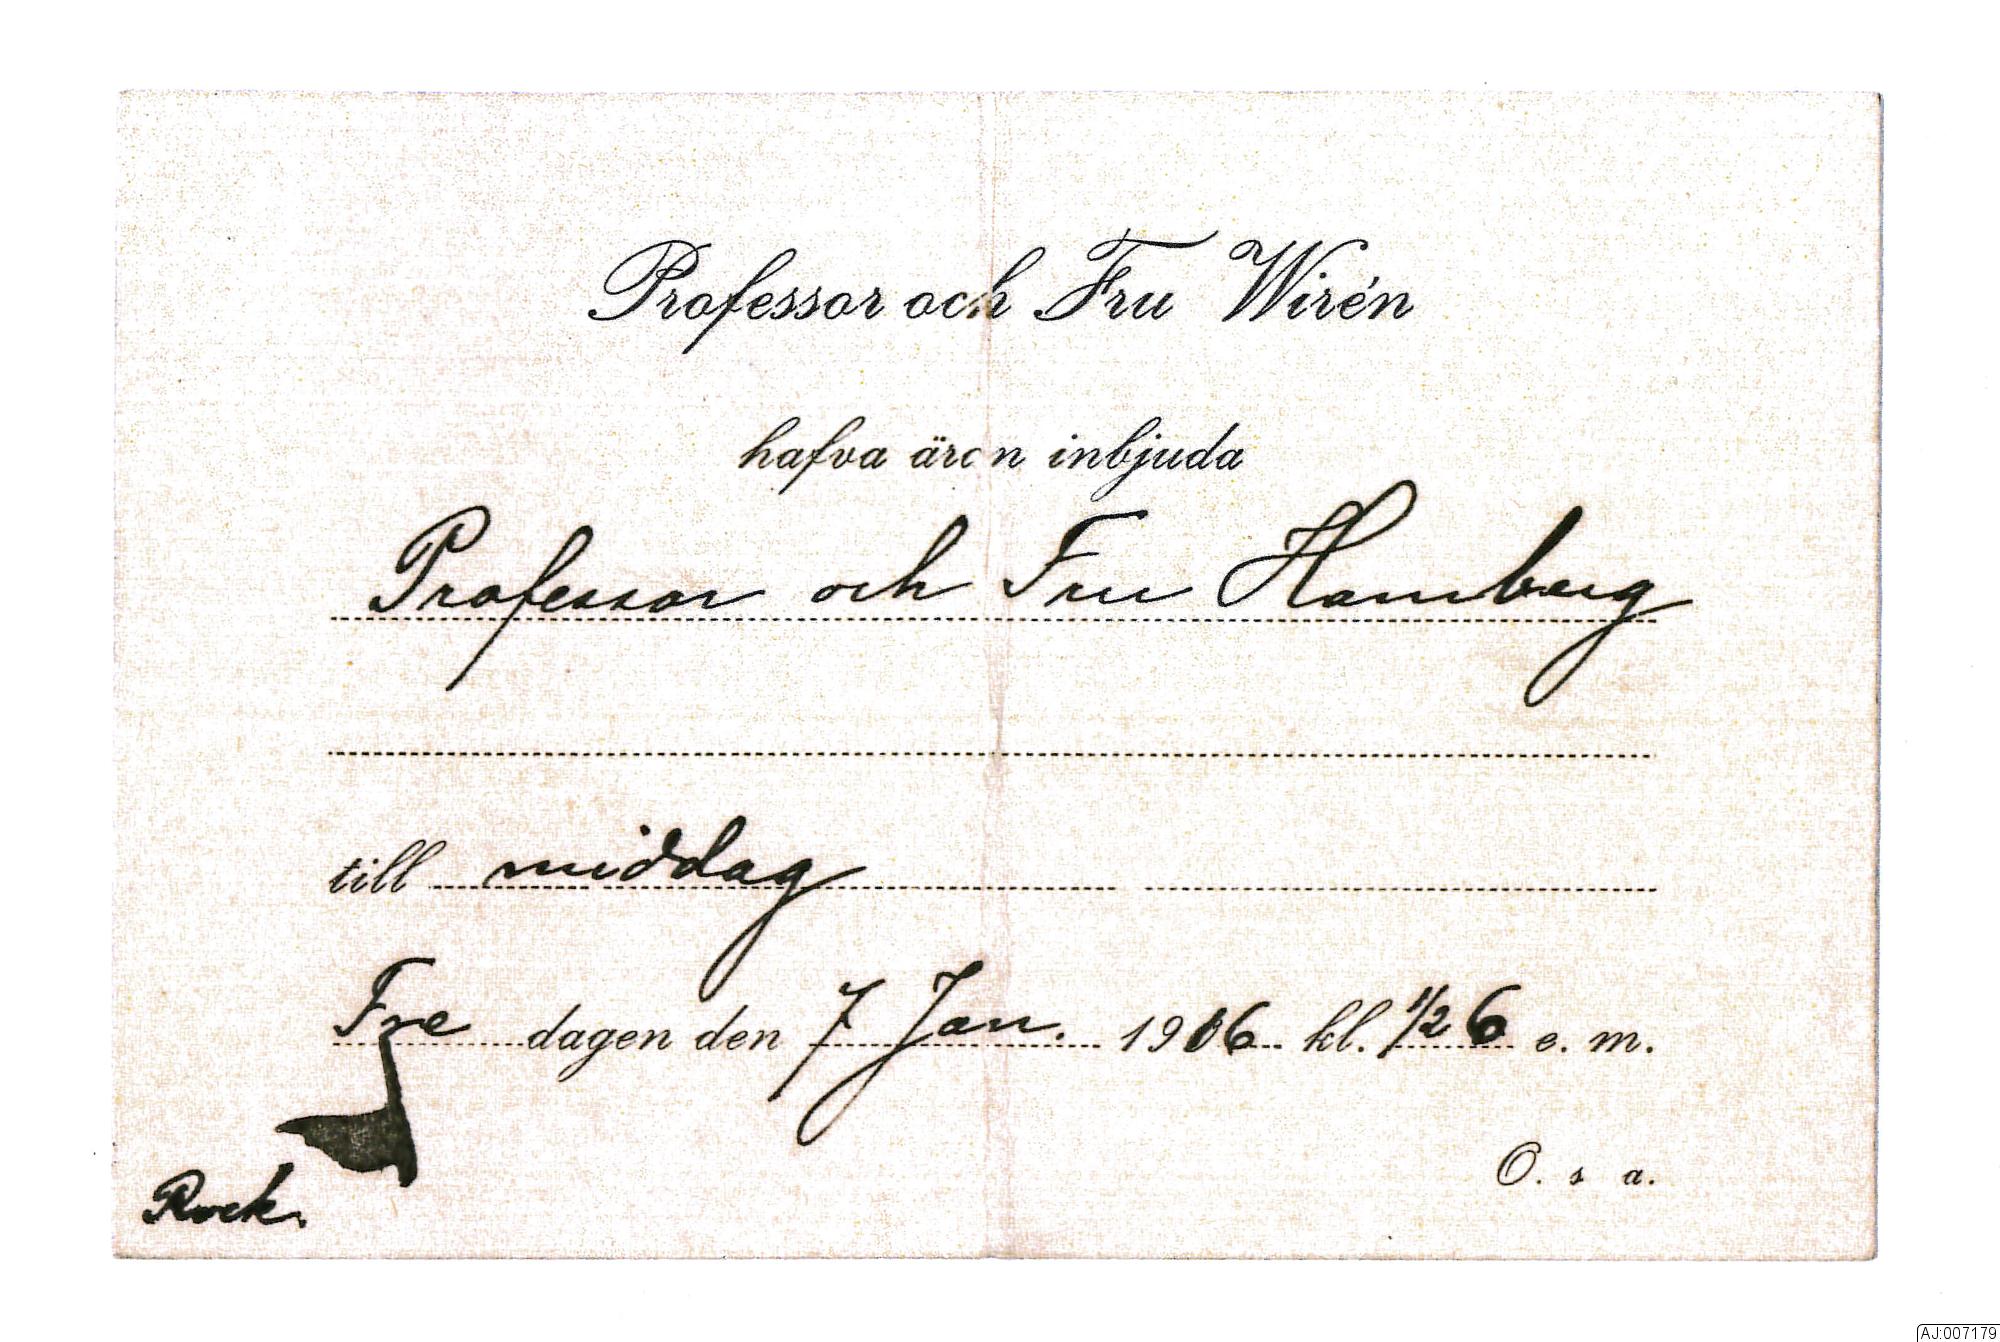 Professor och Fru Wirén
hafva äran inbjuda
Professor och Fru Hamberg
till middag
Fre dagen den 7 Jan. 1916 kl. 1/2 6 e. m.
O. s a.
Rock.
AJ:007179